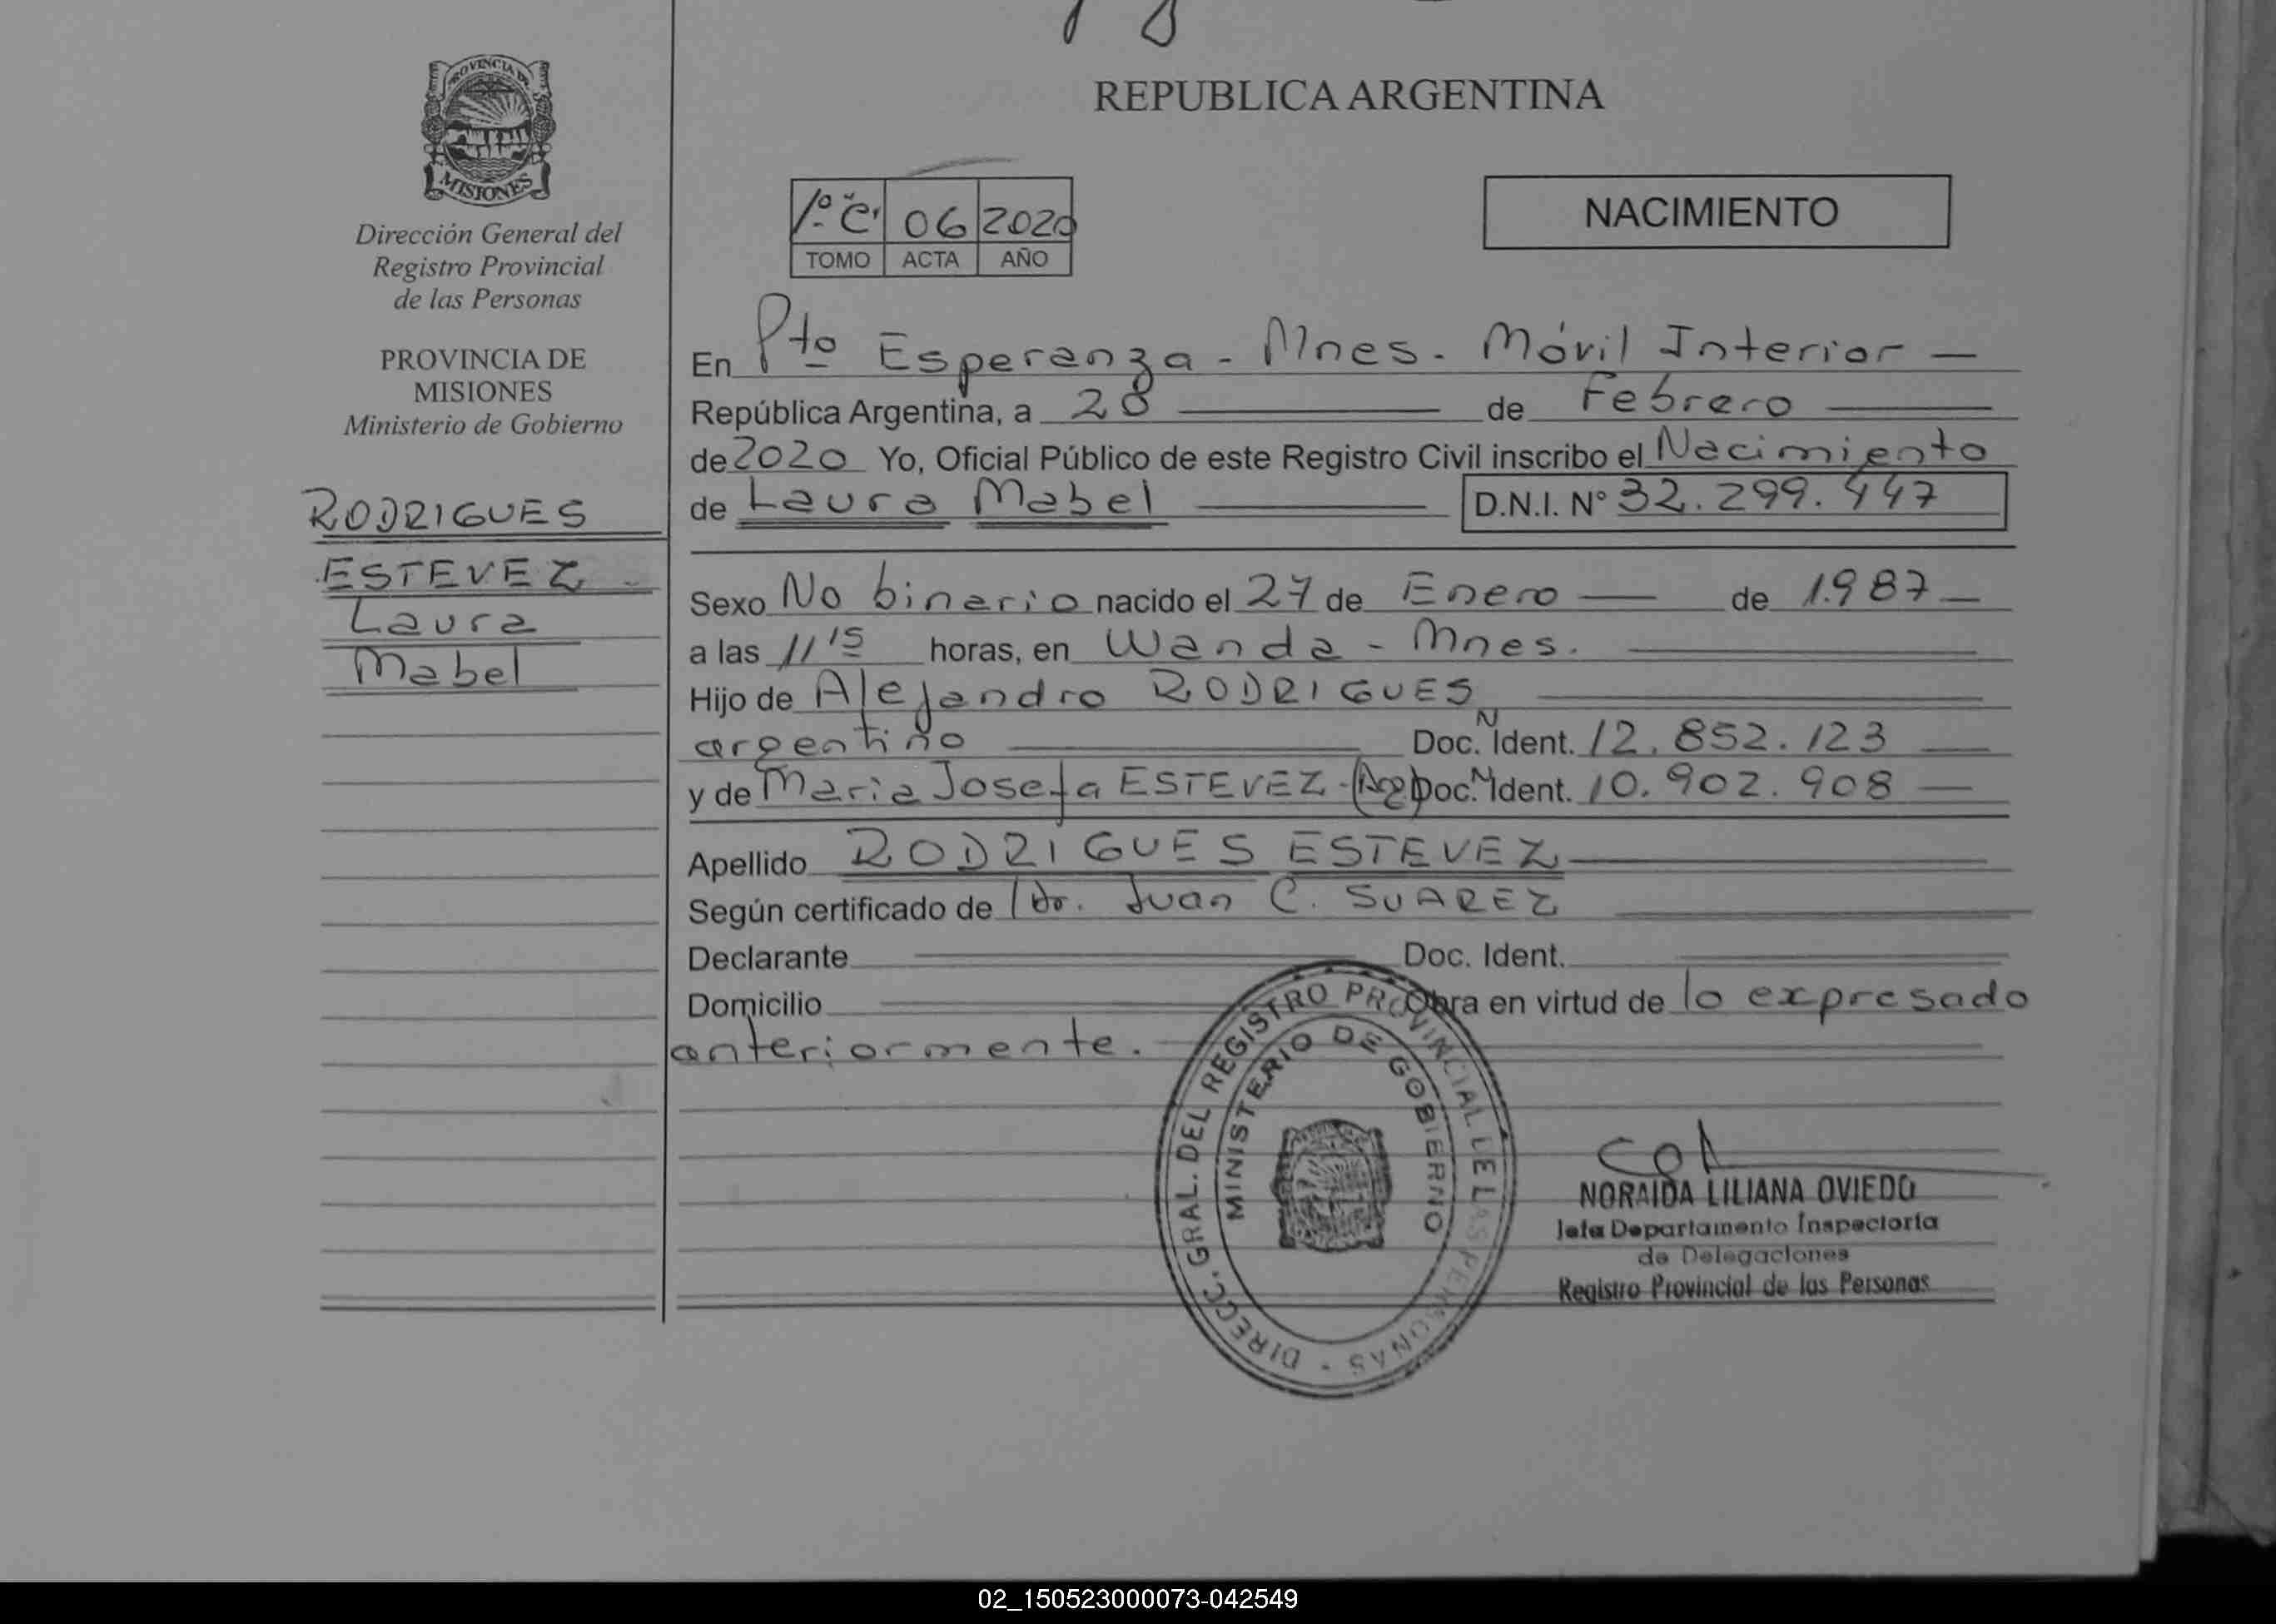 PROVINCIA DE
MISIONES
Dirección General del
Registro Provincial
de las Personas
PROVINCIA DE
MISIONES
Ministerio de Gobierno
RODRIGUES
ESTEVEZ
Laura
Mabel
REPUBLICA ARGENTINA
1º C. 06 2020
TOMO ACTA AÑO
NACIMIENTO
En Pto Esperanza - Mnes. Móvil Interior
República Argentina, a 28 de Febrero
de 2020 Yo, Oficial Público de este Registro Civil inscribo el Nacimiento
de Laura Mabel D.N.I. Nº 32.299.447
Sexo No binario nacido el 27 de Enero de 1.987
a las 11 15 horas, en Wanda - Mnes.
Hijo de Alejandro RODRIGUES
argentino Doc. N Ident. 12.852.123
y de Maria Josefa ESTEVEZ - (Arg) Doc. N Ident. 10.902.908
Apellido RODRIGUES ESTEVEZ
Según certificado de Dr. Juan C. SUAREZ
Declarante Doc. Ident.
Domicilio Obra en virtud de lo expresado
anteriormente.
DIRECC. GRAL. DEL REGISTRO PROVINCIAL DE LAS PERSONAS -
MINISTERIO DE GOBIERNO
NORAIDA LILIANA OVIEDO
Jefa Departamento Inspectoría
de Delegaciones
Registro Provincial de las Personas
02_150523000073-042549